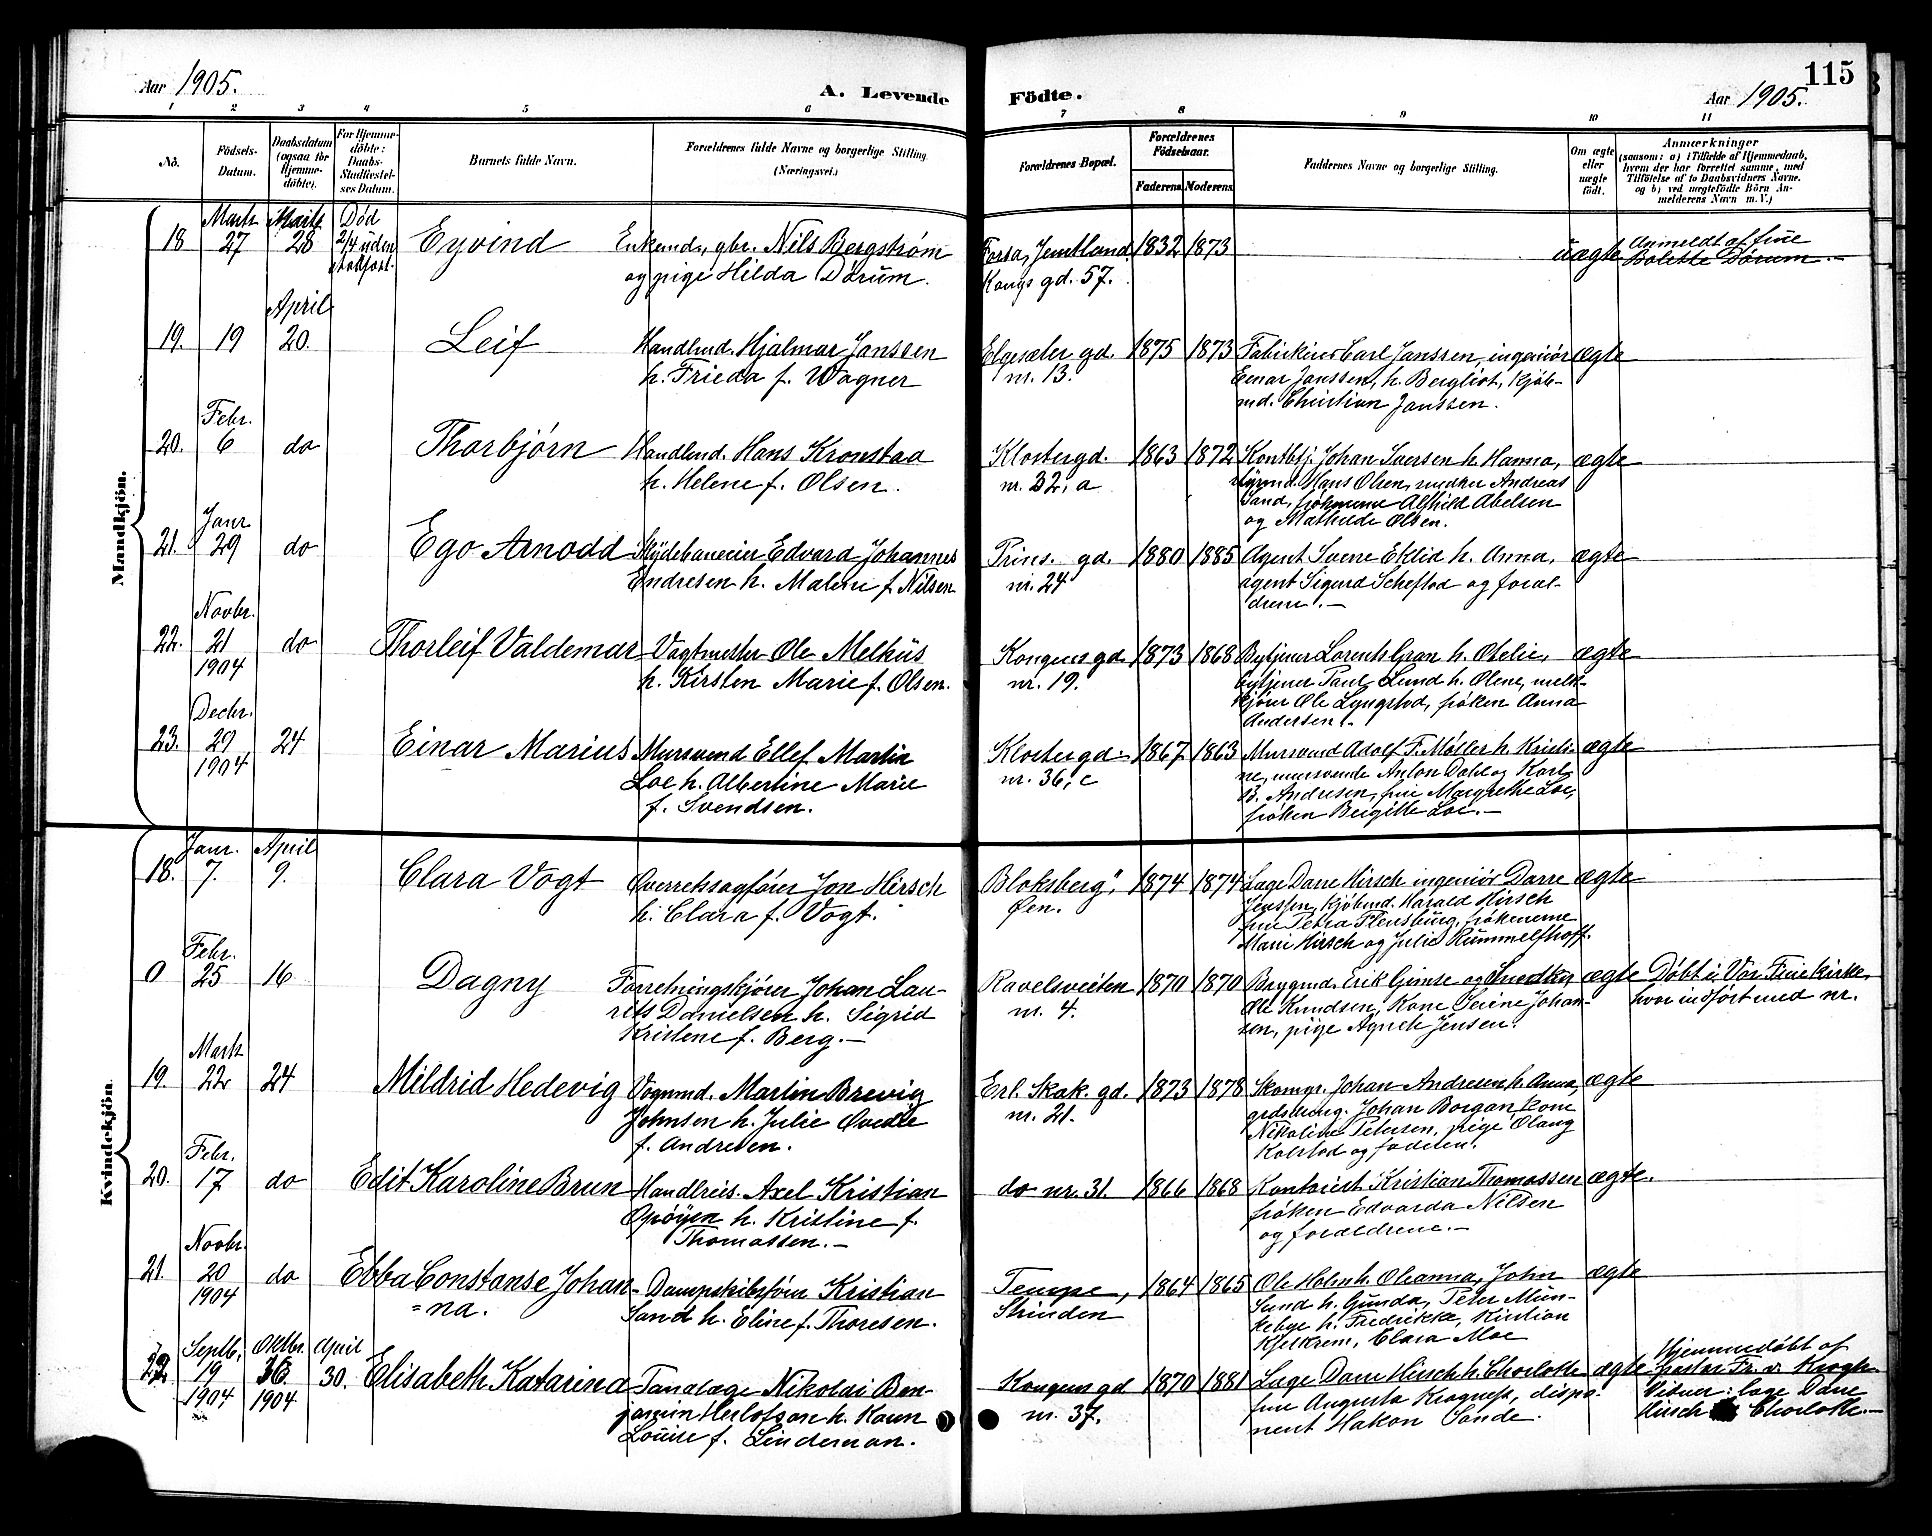 Aar 1905.
A. Levende Födte.
115
Aar 1905.
1 2 3 4 5 6 7 8 9 10 11
No.
Födsels-Datum.
Daabsdatum (ogsaa for Hjemme-døbte).
For Hjemme-döbte: Daabs-Stadfæstel-ses Datum.
Barnets fulde Navn.
Forældrenes fulde Navne og borgerlige Stilling (Næringsvei.)
Forældrenes Bopæl.
Forældrenes Födselsaar.
Faderens Moderens
Faddernes Navne og borgerlige Stilling.
Om ægte eller uægte födt.
Anmærkninger
(saasom: a) i Tilfælde af Hjemmedaab,
hvem der har forrettet samme, med
Tilföielse af to Daabsvidners Navne.
og b) ved uægtefödte Börn An-
melderens Navn m. V.)
Mandkjön.
18 Marts 27 Marts 28 Død 2/4 uden stadfæst.
Eyvind
Enkemd., gbr. Nils Bergstrøm
og pige Hilda Dørum.
Forsa, Jemtland
Kongs gd. 57.
1832 1873
uægte
Anmeldt af frue
Bolette Dørum.
19. 19 April 20.
Leif
Handlmd. Hjalmar Janssen
h. Frieda f. Wagner
Elgesæter gd.
nr. 13.
1875 1873
Fabrikeier Carl Janssen, ingeniør
Einar Janssen, h. Bergliot, kjøb-
md. Christian Janssen.
ægte
20. Febr. 6 do
Thorbjørn
Handlmd. Hans Kronstad
h. Helene f. Olsen.
Klostergd.
nr. 32, a
1863 1872
Kontbtj. Johan Iversen h. Hanna,
styrmd. Hans Olsen, snedker Andreas
Sand, frøknerne Alfhild Abelsen
og Mathilde Olsen.
ægte
21. Janr. 29 do
Ego Arnodd
Skydebaneeier Edvard Johannes
Endresen h. Malene f. Nilsen
Prins. gd.
nr. 24
1880 1885
Agent Sverre Eklid h. Anna,
agent Sigurd Scheflod og foræl-
drene.
ægte
22. Novbr. 21 1904 do
Thorleif Valdemar
Vagtmester Ole Melhus
h. Kirsten Marie f. Olsen.
Kongens gd.
nr. 19.
1873 1868
Bytjener Lorents Gran h. Otelie,
bytjener Paul Lund h. Olene, melk-
kjører Ole Lyngstad, frøken Anna
Andersen.
ægte
23. Decbr. 29 1904 24
Einar Marius
Mursvend Ellef Martin
Loe h. Albertine Marie
f. Svendsen.
Klostergd.
nr. 36, c
1867 1863
Mursvend Adolf F. Møller h. Kristi-
ne, mursvende Anton Dahl og Karl
B. Andresen, frue Margrethe Loe,
frøken Bergitte Loe.
ægte
Kvindekjön.
18. Janr. 7. April 9.
Clara Vogt
Overretssagfører Jon Hirsch
h. Clara f. Vogt.
Bloksberg",
Øen.
1874 1874
Læge Darre Hirsch ingeniør Darre
Jenssen, kjøbmd. Harald Hirsch
frue Petra Flensburg, frøknerne
Marie Hirsch og Julie Rummelhoff.
ægte
0 Febr. 25 16
Dagny
Forretningskjører Johan Lau-
rits Danielsen h. Sigrid
Kristene f. Berg.
Ravelsveiten
nr. 4.
1870 1870
Brygmd. Erik Gimse og Snedker
Ole Knudsen, Kone Serine Johan-
sen, pige Agnete Jensen.
ægte
Døbt i Vor Frue kirke,
hvor indført med nr.
19. Marts 22 24
Mildrid Hedevig
Vognmd. Martin Brevig
Johnsen h. Julie Ovedie
f. Andresen.
Erl. Skak. gd.
nr. 21.
1873 1878
Skomgr. Johan Andresen h. Anna,
Johan Borgan kone
Nikoline Petersen, pige Olaug
Kolstad og faderen.
ægte
20. Febr. 17 do
Edit Karoline Brun
Handlreis. Axel Kristian
Opøyen h. Kristine f.
Thomassen.
do nr. 31.
1866 1868
Kontorist Kristian Thomassen
frøken Edvarda Nilsen
og forældrene.
ægte.
21. Novbr. 20 1904 do
Ebba Constanse Johan-
=na.
Dampskibsfører Kristian
Sand h. Eline f. Thoresen.
Tempe,
Strinden
1864 1865
Ole Holm h. Ohanna, John
Sund h. Gunda, Peter Mun-
kebye h. Fredrikke, Kristian
Kjelkrem, Clara Moe
ægte
22. Septb. 19 1904 Oktbr. 36. 1904 April 30.
Elisabeth Katarina
Tandlæge Nikolai Ben-
jamin Herlofson h. Karen
Louise f. Lindeman.
Kongens gd
nr. 37.
1870 1881
Læge Darre Hirsch h. Charlotte
frue Augusta Kragnest, dispo-
nent Hakon Sande.
ægte
Hjemmedøbt af
pastor Fr. v. Krogh
Vidner: læge Darre
Hirsch Charlotte.